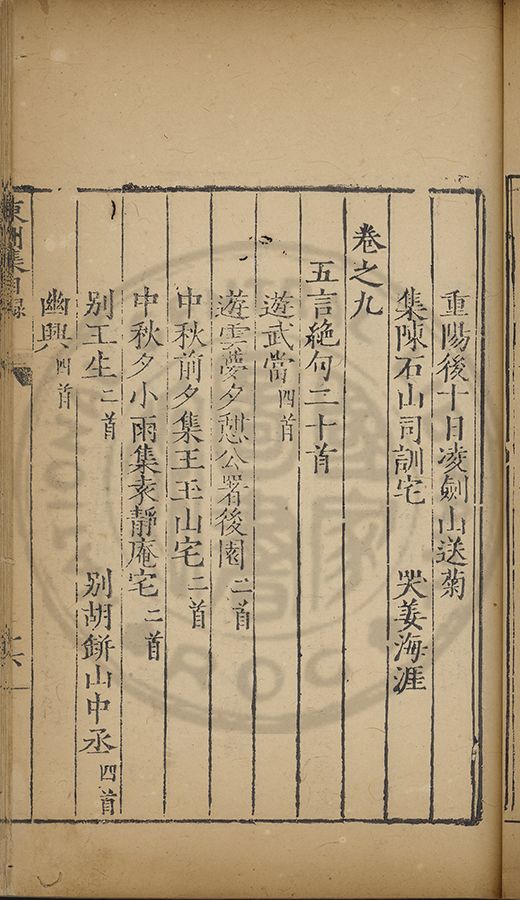 重陽後十日凌劍山送菊
集陳石山司訓宅　哭姜海涯
卷之九
五言絶句二十首
遊武當四首
遊雲夢夕憇公署後園二首
中秋前夕集王玉山宅二首
中秋夕小雨集袁靜庵宅二首
别王生二首　别胡缾山中丞四首
幽興四首
東洲集目録